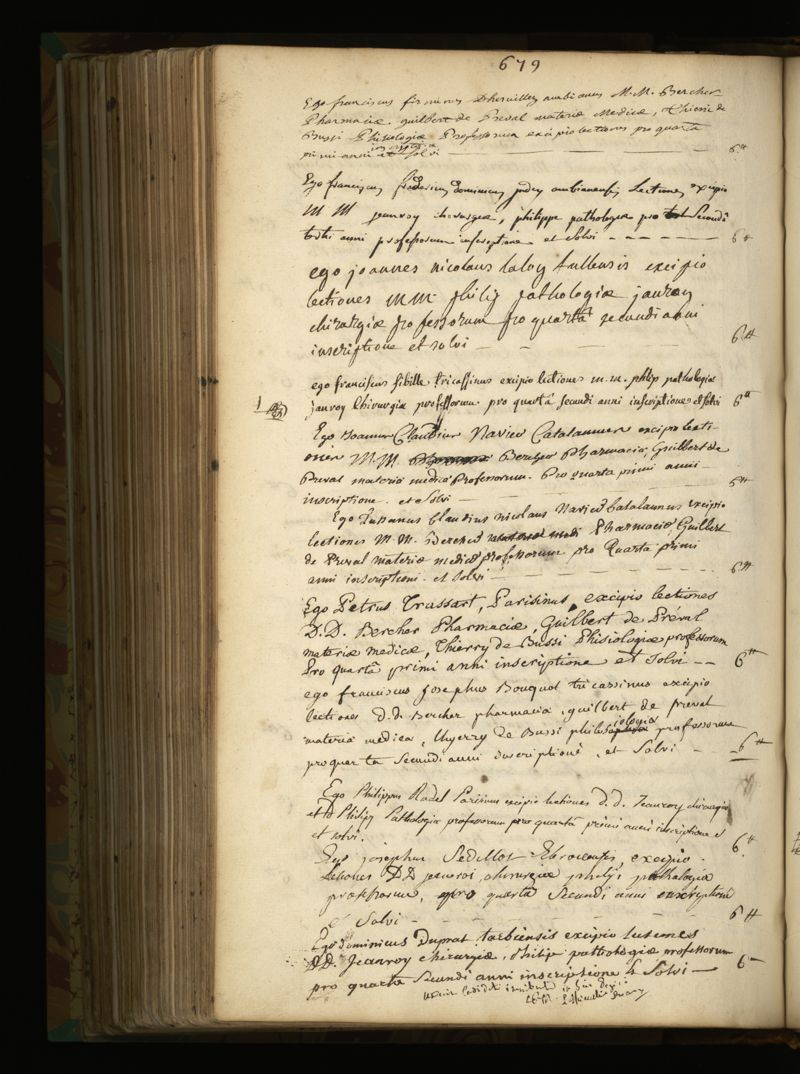 679
Ego franciscus firminus Dhervillez ambianus M.M. Bercher
Pharmaciæ. guilbert de Preval materiæ Medicæ, Thierri de
Bussi Phisiologiæ Professorum excipio lectiones pro quarta
primi anni inscriptione et solvi 6 ₶
Ego franciscus dominicus ambianensis Lectiones excipio
M M jeanroy chirurgiæ, philippe pathologiæ pro Secundi
anni professorum inscriptione et Solvi 6 ₶
ego joannes nicolaus laloy tullensis excipio
lectiones M.M. philip pathologiæ janroy
chirurgiæ professorum pro quartâ secundi anni
inscriptione et solvi 6 ₶
ego franciscus sibille tricassinus excipio lectiones m.m. philip pathologiæ
janroy Chirurgiæ professorum pro quartâ secundi anni inscriptione et solvi 6 ₶
Ego Joannes Claudius Navier Catalaunus excipio lecti-
ones M.M. Bercher Pharmaciæ, Guilbert de
Preval materiæ medicæ Professorum. Pro quarta primi anni
inscriptione. et Solvi 6 ₶
Ego Claudius nicolaus Navier Catalaunus excipio
lectiones M.M. Bercher Pharmaciæ, Guilbert
de Preval materiæ medicæ professorum pro Quarta primi
anni inscriptioni. et solvi 6 ₶
Ego Petrus Trassart, Parisinus, excipio lectiones
D.D. Bercher Pharmaciæ, Guilbert de Préval
materiæ medicæ, Thierry de Bussi Phisiologiæ professorum
Pro quartâ primi anni inscriptione et Solvi 6 ₶
ego franciscus josephus Bouquot tricassinus excipio
lectiones d.d. Bercher pharmacia, guilbert de preval
materia medica, thyerry de Bussi phisiologia professorum
pro quarta Secundi anni inscriptione, et Solvi 6 ₶
Ego Philippus Radel Parisinus excipio lectiones d.d. Jeanroy chirurgiæ
et Philipp Pathologiæ professorum pro quartâ primi anni inscriptione et
et solvi. 6 ₶
Ego josephus Sedillot Ebrocensis, excipio
Lectiones DD jeanroi chirurgiæ philip pathologiæ
professorum, pro quartâ Secundi anni inscriptione
et Solvi 6 ₶
Ego dominicus Duprat tarbiensis excipio lectiones
DD. Jeanroy chirurgiæ, Philip pathologiæ professorum
pro quarta Secundi anni inscriptione & Solvi 6